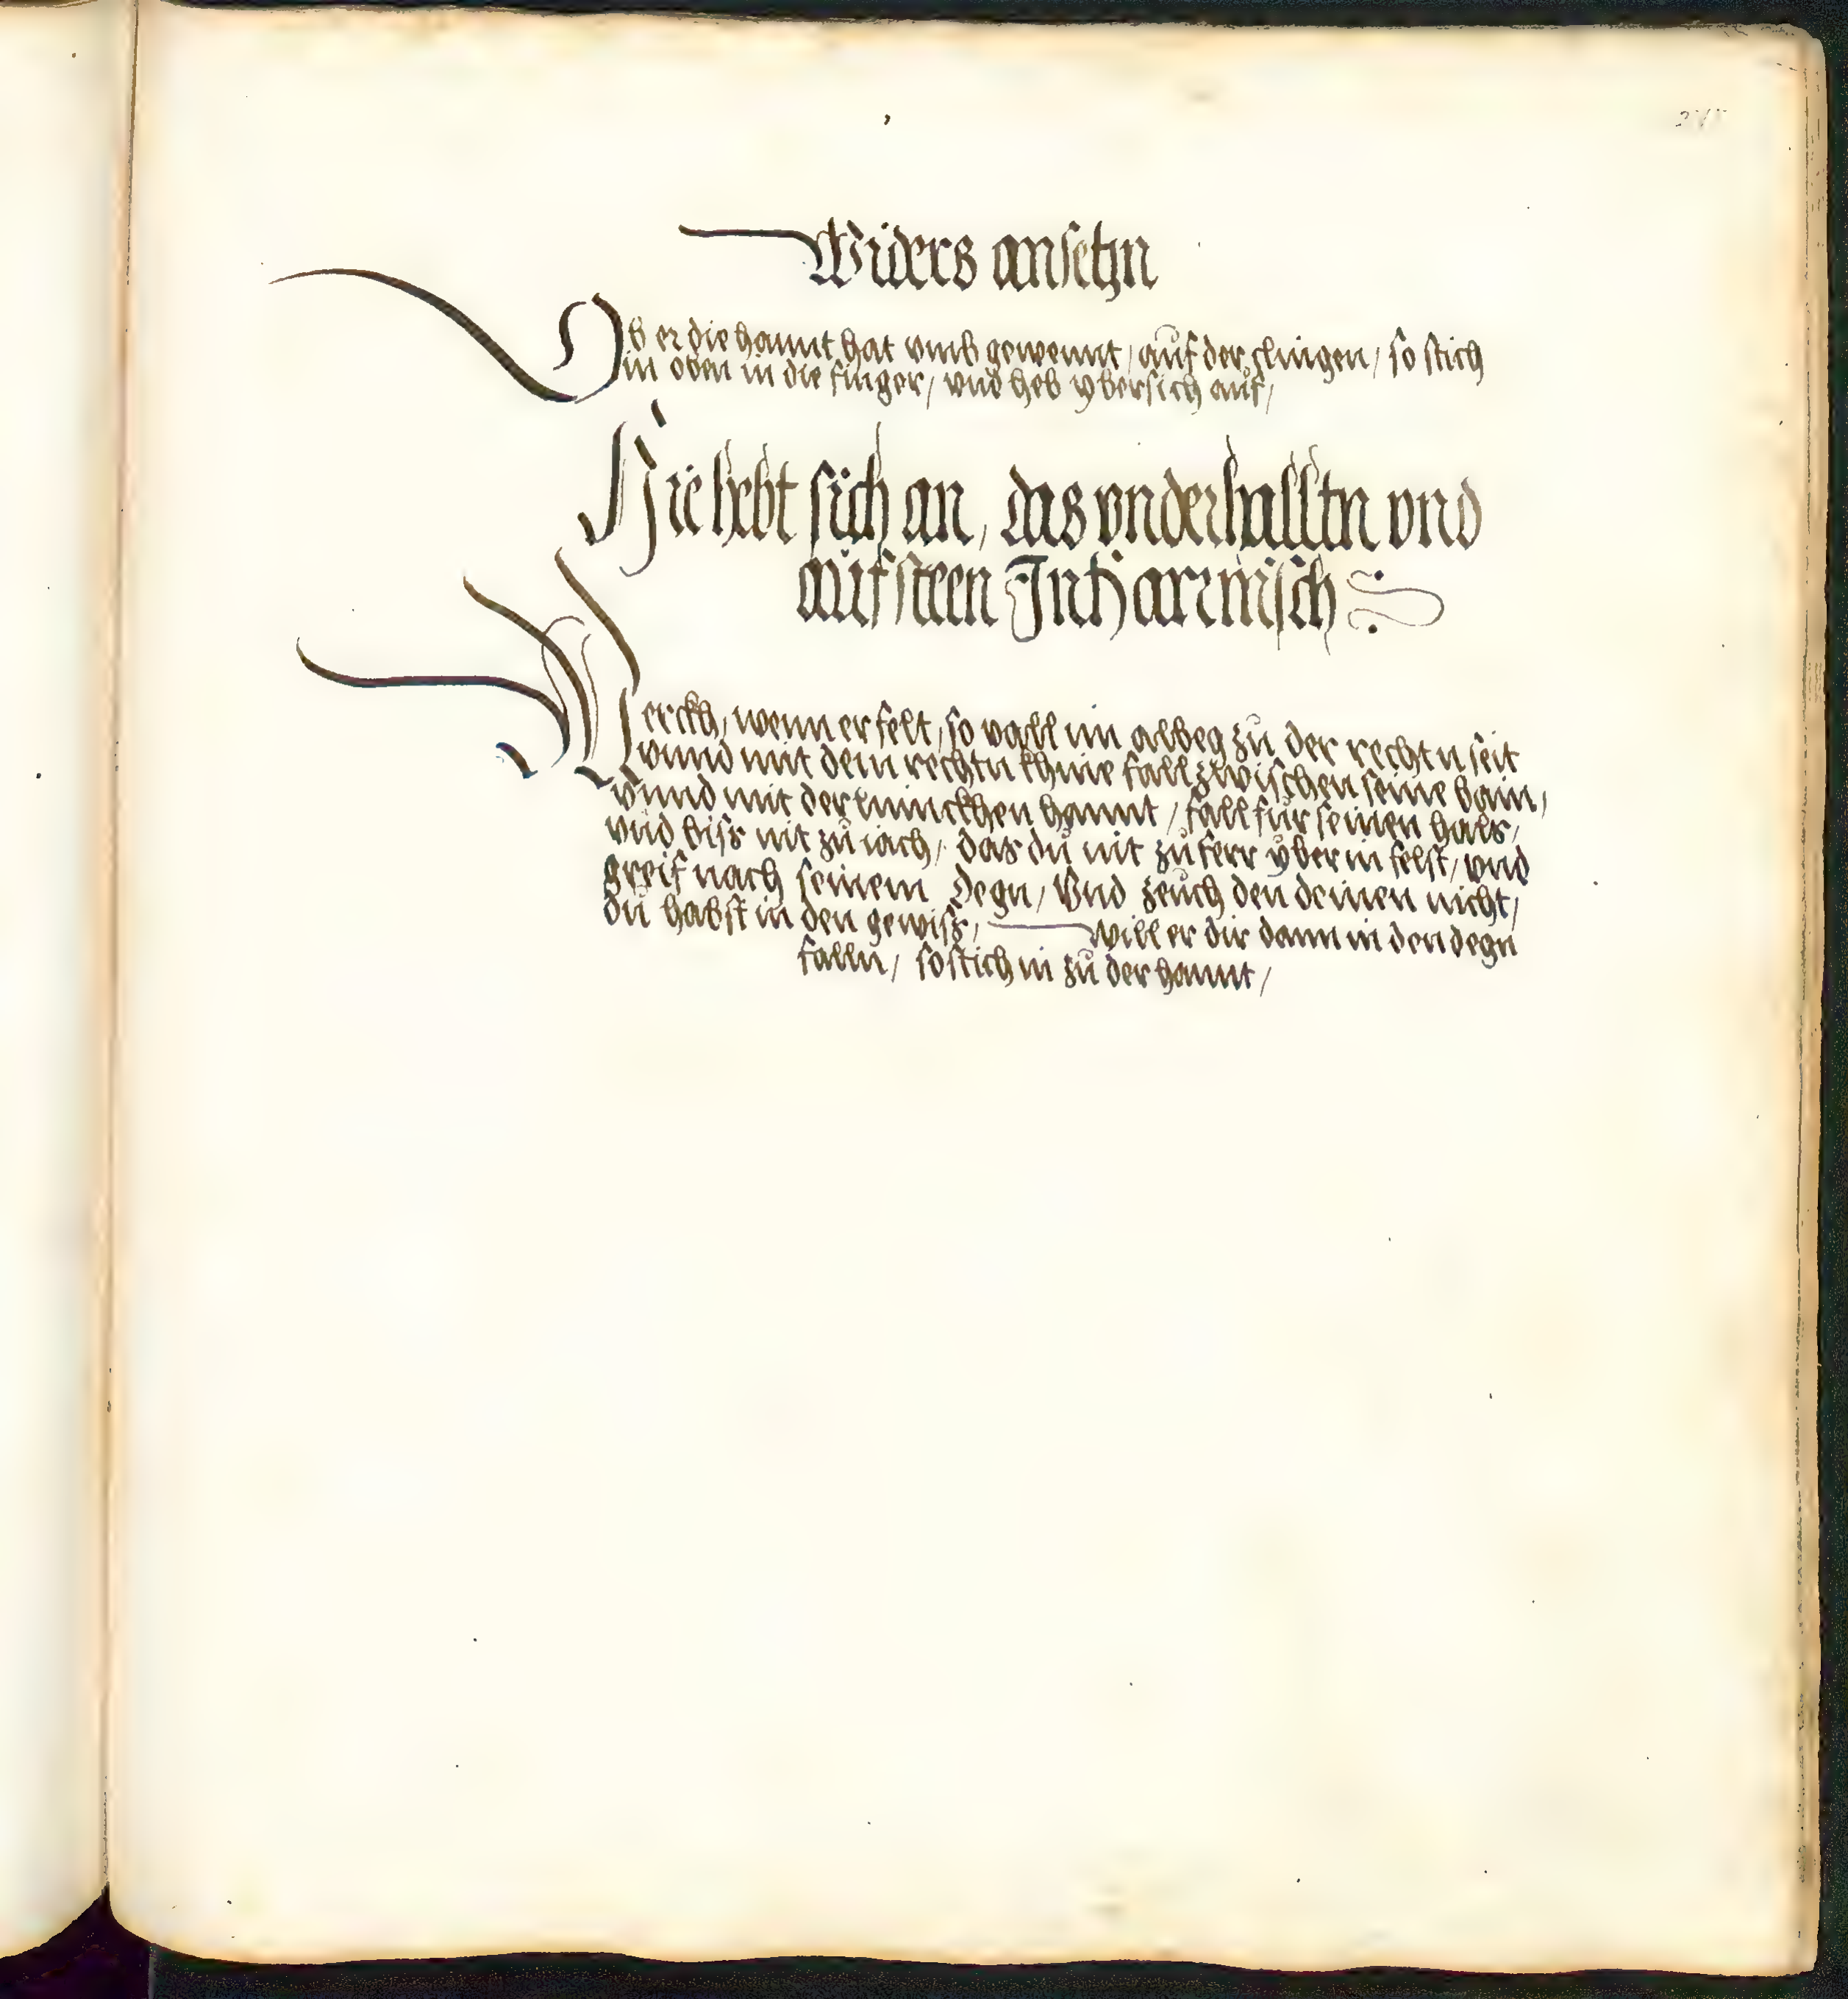 Widers ansetzn
Ob er die hannt hat vmb gewennt / auf der clingen / so stich
in oben in die finger / vnd heb ybersich auf /
Hie hebt sich an, das vnderhalltn vnd
aufsteen In harnnisch
Merckh, wenn er felt, so vall im albeg zu der rechtn seit
vnnd mit dem rechtn khnie fall zwischen seine bain,
vnnd mit der linnckhen hannt / fall fur seinen hals,
vnd biss nit zu iach, das du nit zu ferr yber in felst, vnd
greif nach seinem Degn / Vnd zeuch den deinen nicht,
du habst in den gewiss, will er dir dann in den degn
falln / so stich in zu der hannt /